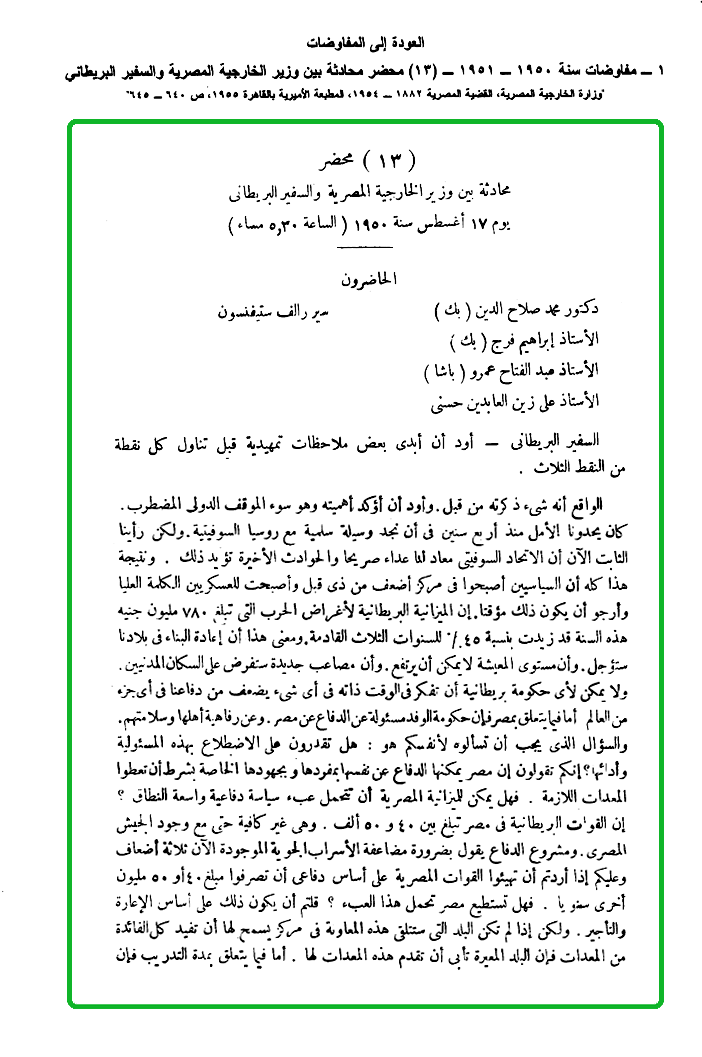 العودة إلى المفاوضات
١ ــ مفاوضات سنة ١٩٥٠ ــ ١٩٥١ ــ (١٣) محضر محادثة بين وزير الخارجية المصرية والسفير البريطاني
"وزارة الخارجية المصرية، القضية المصرية ١٨٨٢ ــ ١٩٥٤، المطبعة الأميرية بالقاهرة ١٩٥٥، ص ٦٤٠ ــ ٦٤٥"
( ١٣ ) محضر
محادثة بين وزير الخارجية المصرية والسفير البريطانى
يوم ١٧ أغسطس سنة ١٩٥٠ ( الساعة ٥,٣٠ مساء )
الحاضرون
دكتور محمد صلاح الدين ( بك ) سير رالف ستيفنسون
الأستاذ إبراهيم فرج ( بك )
الأستاذ عبد الفتاح عمرو ( باشا )
الأستاذ على زين العابدين حسنى
السفير البريطانى — أود أن أبدى بعض ملاحظات تمهيدية قبل تناول كل نقطة
من النقط الثلاث .
الواقع أنه شىء ذكرته من قبل . وأود أن أؤكد أهميته وهو سوء الموقف الدولى المضطرب .
كان يحدونا الأمل منذ أربع سنين فى أن نجد وسيلة سلمية مع روسيا السوفيتية . ولكن رأينا
الثابت الآن أن الاتحاد السوفيتى معاد لنا عداء صريحا والحوادث الأخيرة تؤيد ذلك . ونتيجة
هذا كله أن السياسيين أصبحوا فى مركز أضعف من ذى قبل وأصبحت للعسكريين الكلمة العليا
وأرجو أن يكون ذلك مؤقتا . إن الميزانية البريطانية لأغراض الحرب التى تبلغ ٧٨٠ مليون جنيه
هذه السنة قد زيدت بنسبة ٤٥ ٪ للسنوات الثلاث القادمة . ومعنى هذا أن إعادة البناء فى بلادنا
ستؤجل . وأن مستوى المعيشة لا يمكن أن يرتفع . وأن مصاعب جديدة ستفرض على السكان المدنيين .
ولا يمكن لأى حكومة بريطانية أن تفكر فى الوقت ذاته فى أى شىء يضعف من دفاعنا فى أى جزء
من العالم أما فيما يتعلق بمصر فإن حكومة الوفد مسئولة عن الدفاع عن مصر . وعن رفاهية أهلها وسلامتهم .
والسؤال الذى يجب أن تسألوه لأنفسكم هو : هل تقدرون على الاضطلاع بهذه المسئولية
وأدائها ؟ إنكم تقولون إن مصر يمكنها الدفاع عن نفسها بمفردها وبجهودها الخاصة بشرط أن تعطوا
المعدات اللازمة . فهل يمكن للميزانية المصرية أن تتحمل عبء سياسة دفاعية واسعة النطاق ؟
إن القوات البريطانية فى مصر تبلغ بين ٤٠ و ٥٠ ألف . وهى غير كافية حتى مع وجود الجيش
المصرى . ومشروع الدفاع يقول بضرورة مضاعفة الأسراب الجوية الموجودة الآن ثلاثة أضعاف
وعليكم إذا أردتم أن تهيئوا القوات المصرية على أساس دفاعى أن تصرفوا مبلغ ٤٠ أو ٥٠ مليون
أخرى سنويا . فهل تستطيع مصر تحمل هذا العبء ؟ قلتم أن يكون ذلك على أساس الإعارة
والتأجير . ولكن إذا لم تكن البلد التى ستتلقى هذه المعاونة فى مركز يسمح لها أن تفيد كل الفائدة
من المعدات فإن البلد المعيرة تأبى أن تقدم هذه المعدات لها . أما فيما يتعلق بمدة التدريب فإن